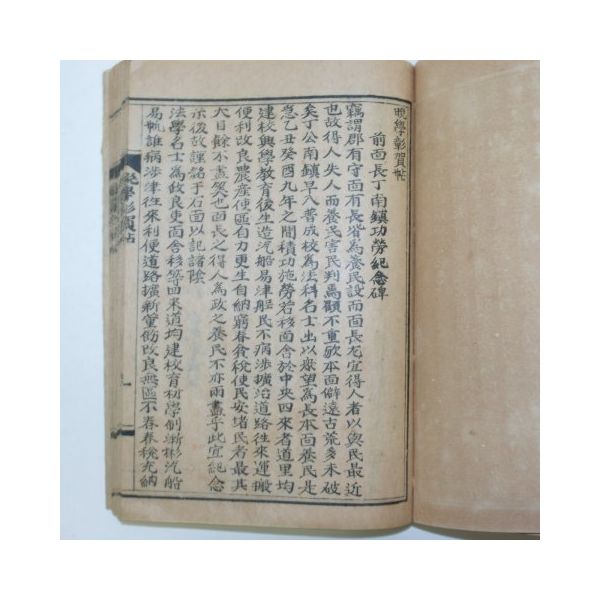 晩學彰賀帖
前面長丁南鎭功勞紀念碑
竊謂郡有守面有長皆爲養民設而面長尤宜得人者以與民最近
也故得人失人而養民害民判焉顧不重歟本面僻遠古荒多未破
矣丁公南鎭早入普成校爲法科名士出以衆望爲長本面養民是
急乙丑癸酉九年之間積功施勞若移面舍於中央四來者道里均
建校興學教育後生造汽船易津船民不病涉擴治道路往來運搬
便利改良農産使區有力更生自納窮春食稅使民安堵民者最其
大目餘不盡筴也面長之得人爲政之養民不亦兩盡乎此宜紀念
示後故謹銘于石面以記諸陰
法學名士爲政良吏面舍移等四來道均建校育材學制嶄彬汽船
易航誰病涉律往來利便道路擴新重筋改良無區不春春稅充納
晩學彰賀帖
一